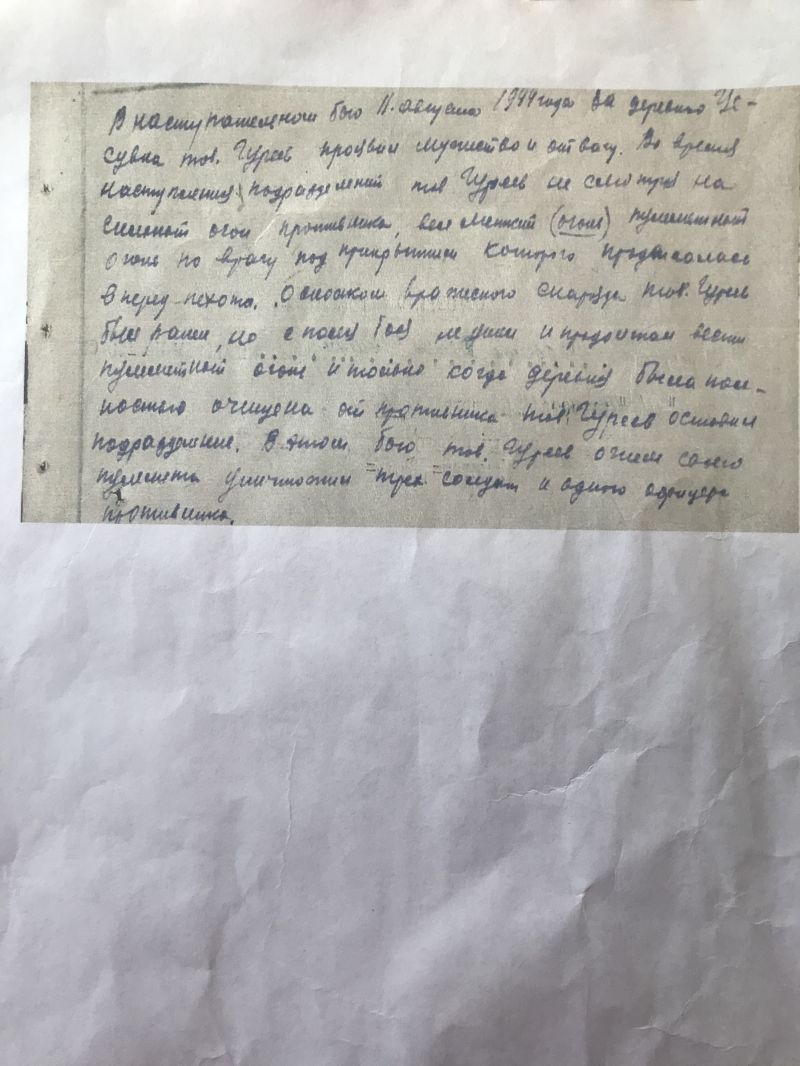 В наступательном бою 11. августа 1944 года за деревню Це-
сувка тов. Гуреев проявил мужество и отвагу. Во время
наступления подразделений тов Гуреев не смотря на
сильный огонь противника, вел меткий (огонь) пулеметный
огонь по врагу под прикрытием которого продвигалась
вперед пехота. Осколком вражеского снаряда тов. Гуреев
был ранен, но с поля боя не ушел и продолжал вести
пулеметный огонь и только когда деревня была пол-
ностью очищена от противника тов. Гуреев оставил
подразделение. В этом бою тов. Гуреев огнем своего
пулемета уничтожил трех солдат и одного офицера
противника.